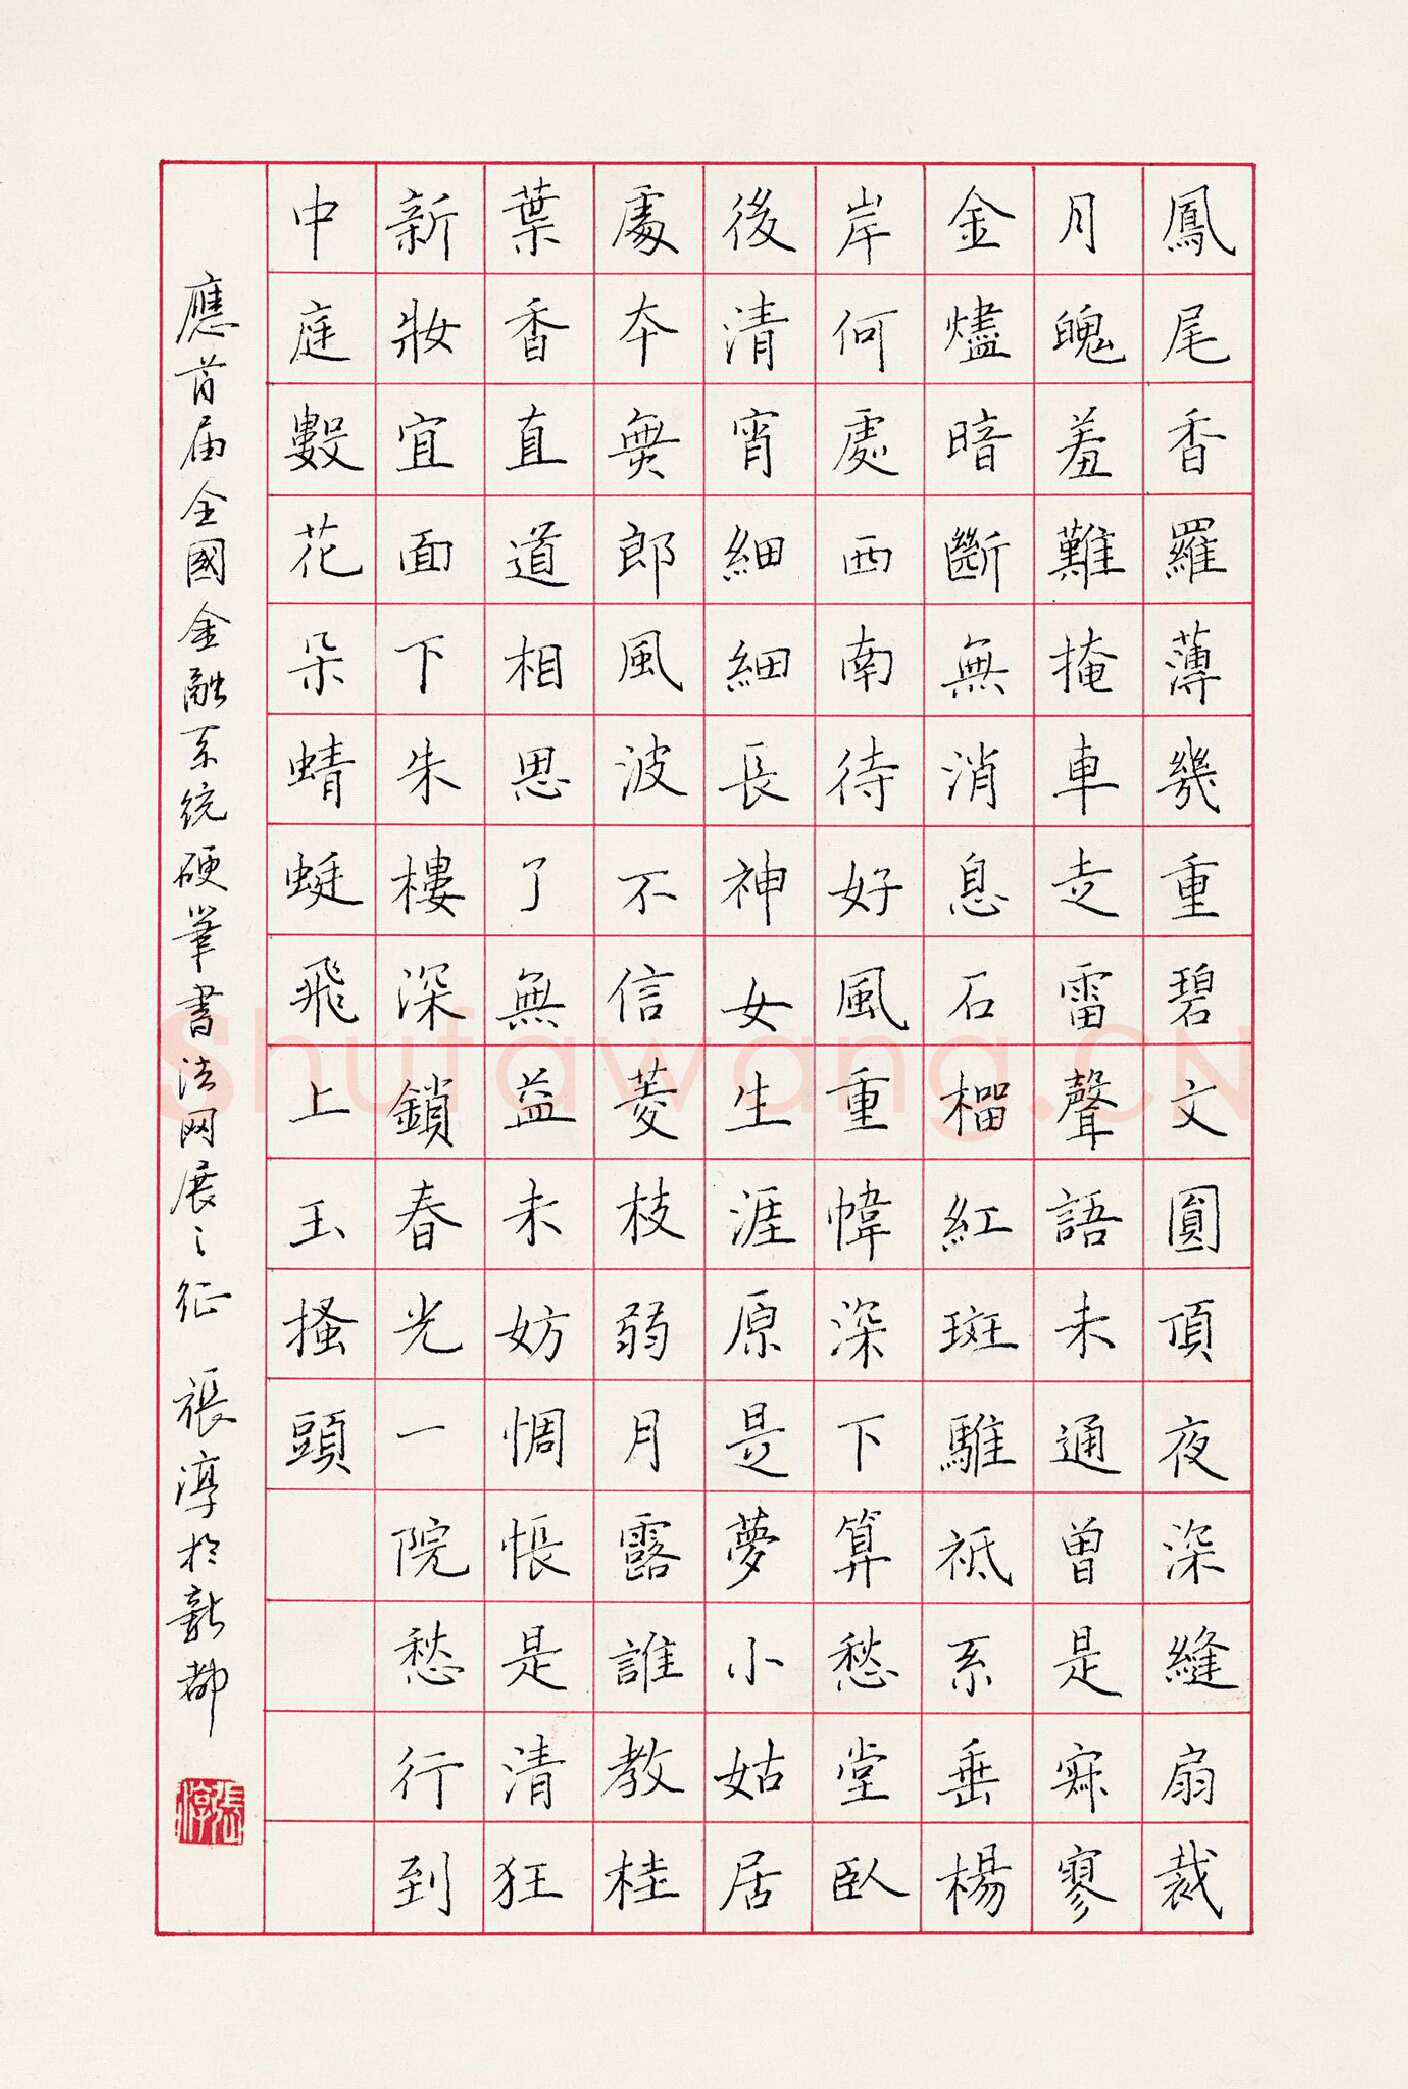 鳳尾香羅薄幾重碧文圓頂夜深縫扇裁
月魄羞難掩車走雷聲語未通曾是寂寥
金燼暗斷無消息石榴紅斑騅祗系垂楊
岸何處西南待好風重幃深下算愁堂臥
後清宵細細長神女生涯原是夢小姑居
處本無郎風波不信菱枝弱月露誰教桂
葉香直道相思了無益未妨惆悵是清狂
新妝宜面下朱樓深鎖春光一院愁行到
中庭數花朵蜻蜓飛上玉搔頭
應首届全國金融系統硬筆書法网展之征 張淳於新都
張淳
Shufawang.CN